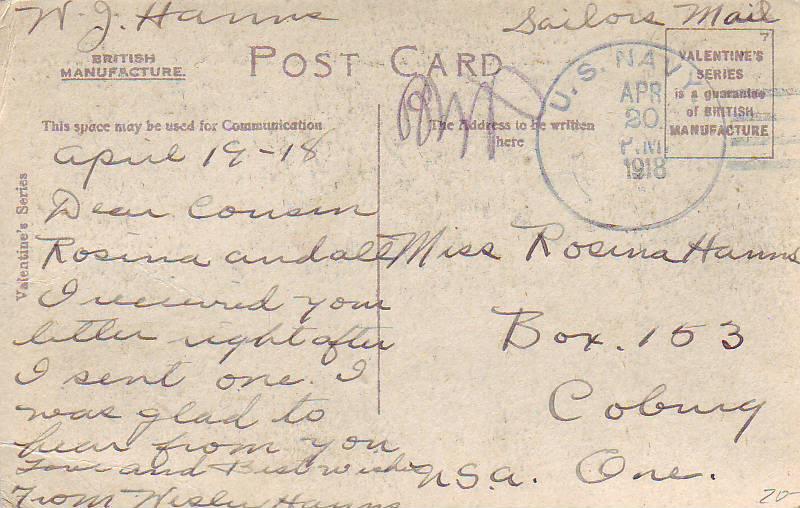 W. J. Hanns
Sailors Mail
BRITISH
MANUFACTURE.
POST CARD
7
VALENTINE'S
SERIES
is a guarantee
of BRITISH
MANUFACTURE
U. S. NAVY
APR
20
P.M.
1918
This space may be used for Communication
The Address to be written
here
Valentine's Series
April 19-18
Dear Cousin
Rosina and all
I received your
letter right after
I sent one. I
was glad to
hear from you
Love and Best wishes
From Wesley Hanns
Miss Rosina Hanns
Box. 153
Coburg
U.S.A. Ore.
20-